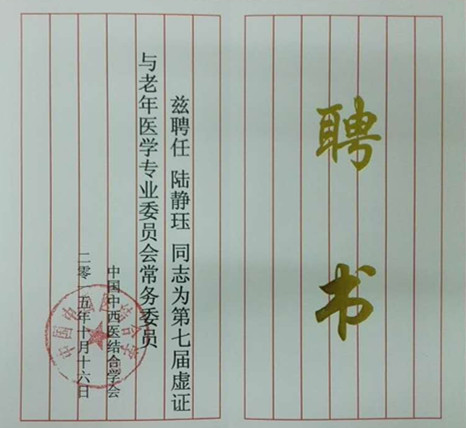 聘书
兹聘任 陆静珏 同志为第七届虚证
与老年医学专业委员会常务委员
中国中西医结合学会
二零一五年十月十六日
中国中西医结合学会